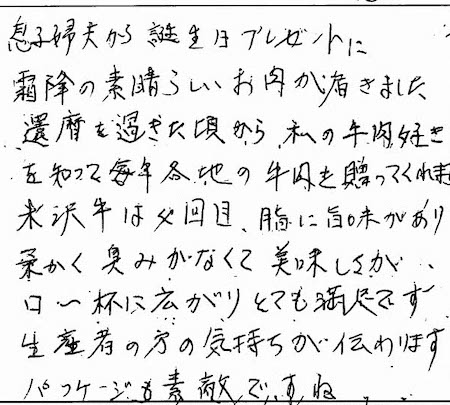 息子婦夫から誕生日プレゼントに
霜降の素晴らしいお肉が届きました
還暦を過ぎた頃から、私の牛肉好き
を知って毎年各地の牛肉を贈ってくれま
米沢牛は 回目、脂に旨味があり
柔かく臭みがなくて美味しさが、
口一杯に広がりとても満足です
生産者の方の気持ちが伝わります
パッケージも素敵ですね